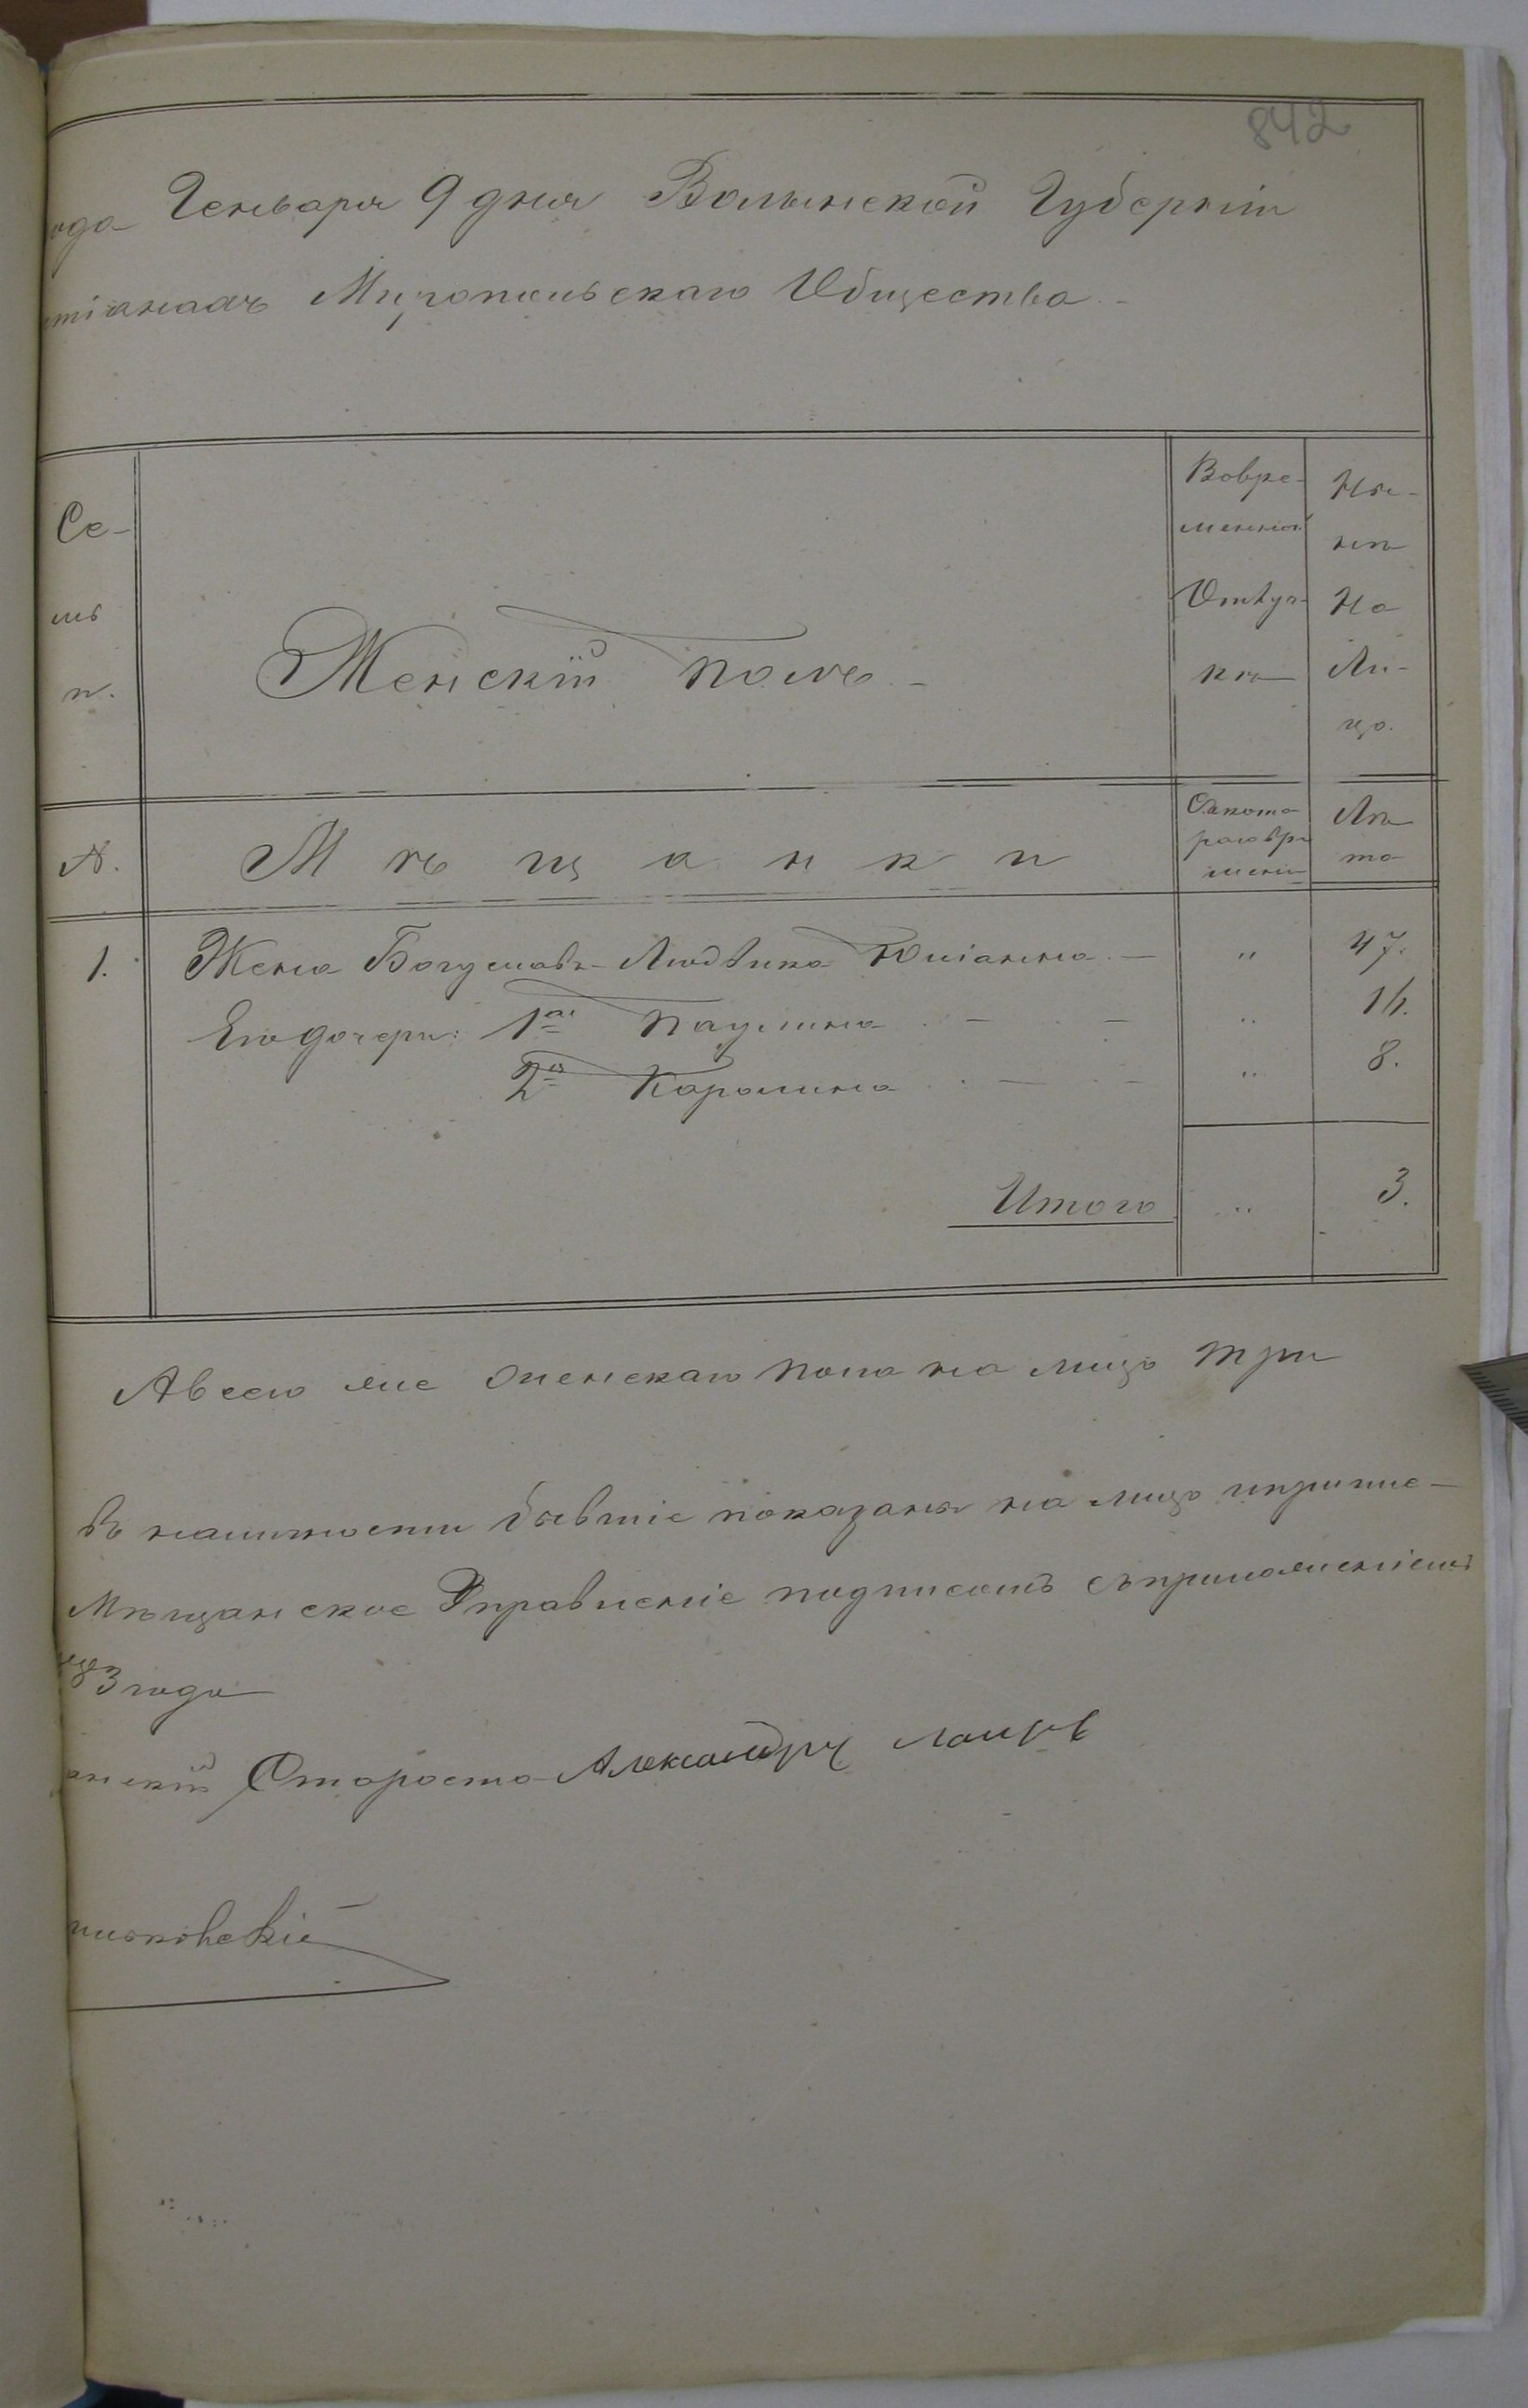 842
ода Генваря 9 дня Волынской Губерніи
тіанахъ Миропольскаго Общества.
Се-
мь
и.
Женскій полъ
Вовре-
менной
Отлуч-
кѣ
Ны-
нѣ
На
Ли-
цо.
№.
Мѣщанки
Съкото-
раговре
мени
Лѣ
та
1. Жена Богуслава Людвика Юліанна. — " 47.
Егодочери: 1я Паулина — — " 16.
2я Каролина — — " 8.
Итого " 3.
Авсего же женскаго пола на лицо три
въ наличности бывшіе показаны на лицо
Мѣщанское Управленіе подписомъ съприложеніемъ
83 года
анскій Староста Александръ